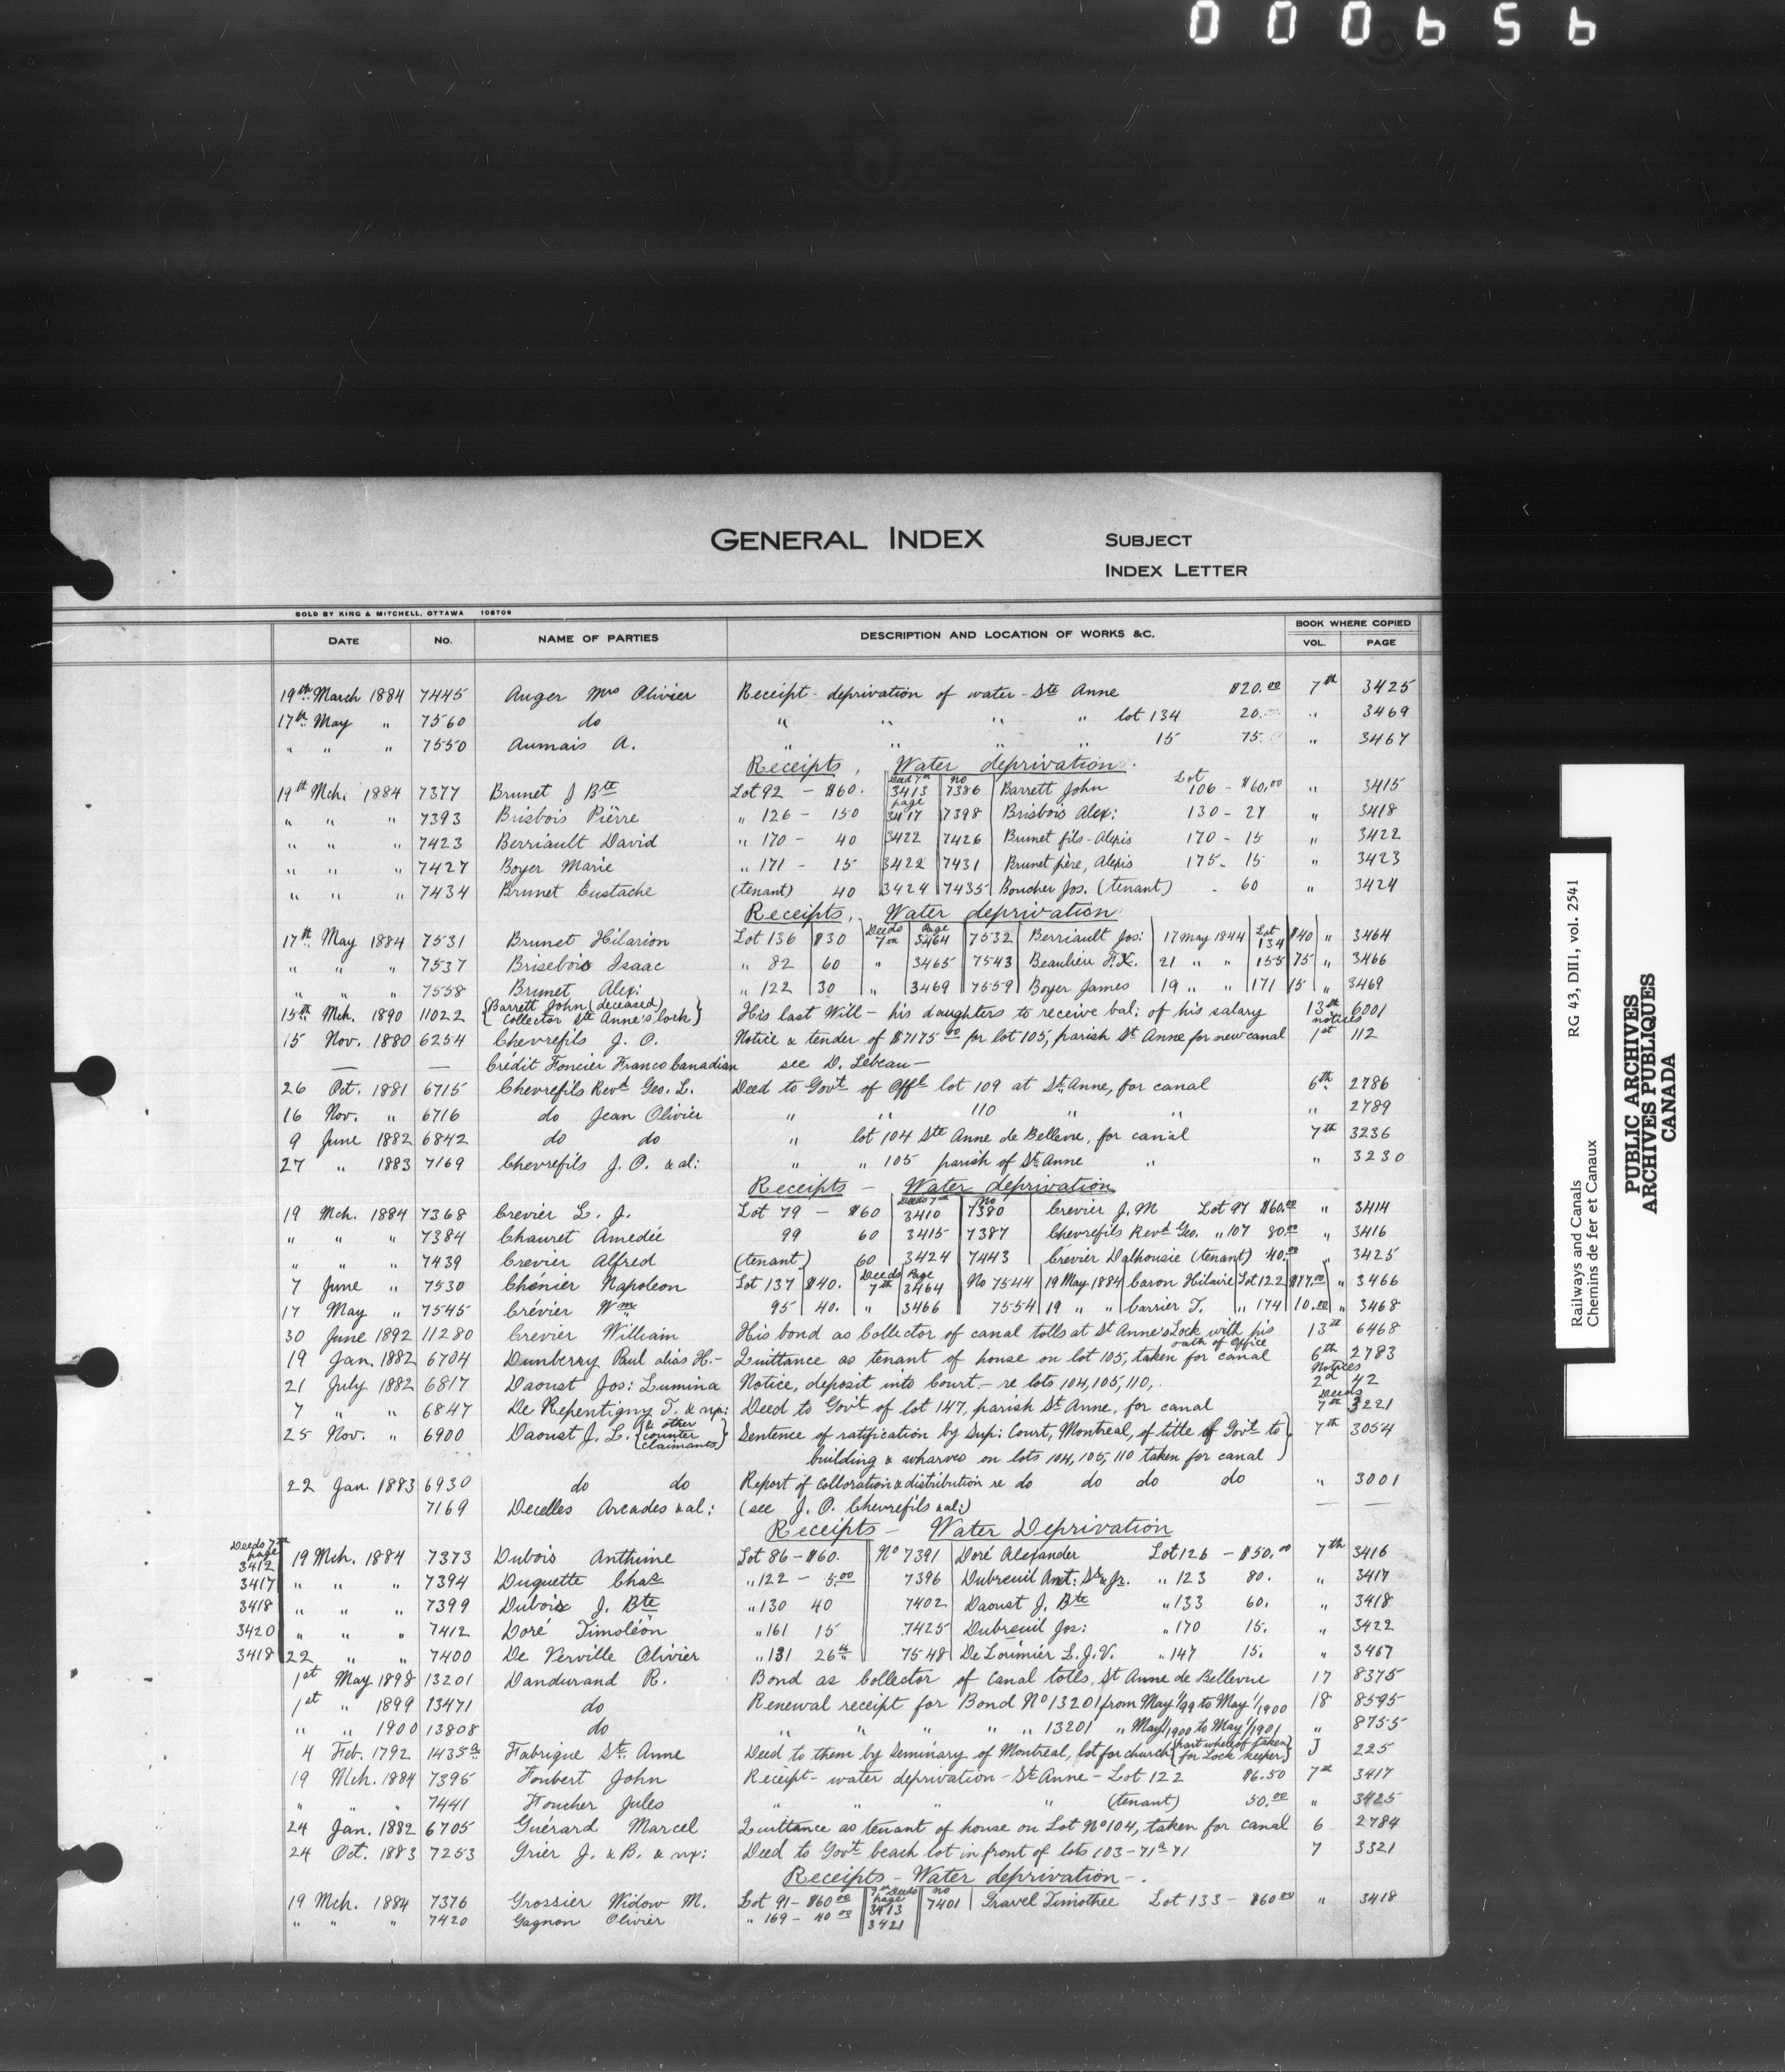 000656
GENERAL INDEX
SUBJECT
INDEX LETTER
SOLD BY KING & MITCHELL, OTTAWA 108709
DATE No. NAME OF PARTIES DESCRIPTION AND LOCATION OF WORKS &C. BOOK WHERE COPIED
VOL. PAGE
19th March 1884 7445 Auger Mrs Olivier Receipt - deprivation of water - Ste Anne $20.00 7th 3425
17th May " 7560 do " " " " lot 134 20. " 3469
" " " 7550 Aumais A. " " " " 15 75. " 3467
Receipts, Water deprivation.
19th Mch. 1884 7377 Brunet J Bte Lot 92 - $60. Deed 7th 3413 page No 7386 Barrett John Lot 106 - $60.00 " 3415
" " " 7393 Brisbois Pierre " 126 - 150 3417 7398 Brisbois Alex: 130 - 27 " 3418
" " " 7423 Berriault David " 170 - 40 3422 7426 Brunet fils - Alexis 170 - 15 " 3422
" " " 7427 Boyer Marie " 171 - 15 3422 7431 Brunet père, Alexis 175 - 15 " 3423
" " " 7434 Brunet Eustache (tenant) 40 3424 7435 Boucher Jos. (tenant) - 60 " 3424
Receipts, Water deprivation
17th May 1884 7531 Brunet Hilarion Lot 136 $30 Deeds 7th Page 3464 7532 Berriault Jos: 17 May 1844 Lot 134 $40 " 3464
" " " 7537 Brisebois Isaac " 82 60 " 3465 7543 Beaulieu F.X. 21 " " 155 75 " 3466
" " " 7558 Brunet Alex: " 122 30 " 3469 7559 Boyer James 19 " " 171 15 " 3469
15th Mch. 1890 11022 {Barrett John (deceased) Collector Ste Anne's lock} His last Will - his daughters to receive bal: of his salary 13th 6001
15 Nov. 1880 6254 Chevrefils J. O. Notice & tender of $7175.00 for lot 105, parish St Anne for new canal notices 1st 112
— — Crédit Foncier Franco Canadian see D. Lebeau —
26 Oct. 1881 6715 Chevrefils Revd Geo. L. Deed to Govt of Offl lot 109 at St. Anne, for canal 6th 2786
16 Nov. " 6716 do Jean Olivier " " 110 " " " 2789
9 June 1882 6842 do do " lot 104 Ste Anne de Bellevue, for canal 7th 3236
27 " 1883 7169 Chevrefils J. O. & al: " " 105 parish of St. Anne " " 3230
Receipts - Water deprivation
19 Mch. 1884 7368 Crevier L. J. Lot 79 - $60 Deeds 7th 3410 No 7380 Crevier J. M Lot 97 $60.00 " 3414
" " " 7384 Chauret Amedée 99 60 3415 7387 Chevrefils Revd Geo. " 107 80.00 " 3416
" " " 7439 Crevier Alfred (tenant) 60 3424 7443 Crévier Dalhousie (tenant) 40.00 " 3425
7 June " 7530 Chénier Napoleon Lot 137 $40. Deeds 7th Page 3464 No 7544 19 May 1884 Caron Hilaire Lot 122 $17.00 " 3466
17 May " 7545 Crévier Wm 95 40. " 3466 7554 19 " " Carrier T. " 174 10.00 " 3468
30 June 1892 11280 Crevier William His bond as Collector of canal tolls at St Anne's Lock with his oath of office 13th 6468
19 Jan. 1882 6704 Dunberry Paul alias H.- Quittance as tenant of house on lot 105, taken for canal 6th 2783
21 July 1882 6817 Daoust Jos: Lumina Notice, deposit into Court - re lots 104, 105, 110, . Notices 2d 42
7 " " 6847 De Repentigny T. & ux: Deed to Govt of lot 147, parish St. Anne, for canal Deeds 7th 3221
25 Nov. " 6900 Daoust J. L. {& other counter claimants} Sentence of ratification by Sup: Court, Montreal, of title of Govt to 7th 3054
building & wharves on lots 104, 105, 110 taken for canal
22 Jan. 1883 6930 do do Report of Colloration & distribution re do do do do " 3001
7169 Decelles Arcades & al: (see J. O. Chevrefils & al:) — —
Receipts - Water Deprivation
Deeds 7th page
3412 19 Mch. 1884 7373 Dubois Anthime Lot 86 - $60. No 7391 Doré Alexander Lot 126 - $50.00 7th 3416
3417 " " " 7394 Duquette Chas " 122 - 5.00 7396 Dubreuil Ant: Sr & Jr. " 123 80. " 3417
3418 " " " 7399 Dubois J. Bte " 130 40 7402 Daoust J. Bte " 133 60. " 3418
3420 " " " 7412 Doré Timoléon " 161 15 7425 Dubreuil Jos: " 170 15. " 3422
3418 22 " " 7400 De Kerville Olivier " 131 26 7548 De Lorimier L. J. V. " 147 15. " 3467
1st May 1898 13201 Dandurand R. Bond as Collector of Canal tolls, St Anne de Bellevue 17 8375
1st " 1899 13471 do Renewal receipt for Bond No 13201 from May 1/99 to May 1/1900 18 8595
" " 1900 13808 do " " " " " 13201 " May 1/1900 to May 1/1901 " 8755
4 Feb. 1792 1435a Fabrique St. Anne Deed to them by Seminary of Montreal, lot for church {part whereof taken for Lock keeper} J 225
19 Mch. 1884 7395 Foubert John Receipt - water deprivation - St Anne - Lot 122 $6.50 7th 3417
" " " 7441 Foucher Jules " " " " (tenant) 50.00 " 3425
24 Jan. 1882 6705 Guérard Marcel Quittance as tenant of house on Lot No 104, taken for canal 6 2784
24 Oct. 1883 7253 Grier J. & B. & ux: Deed to Govt beach lot in front of lots 103 - 71a 71 7 3321
Receipts - Water deprivation -.
19 Mch. 1884 7376 Grossier Widow M. Lot 91 - $60.00 7th Deeds page 3413 No 7401 Gravel Timothee Lot 133 - $60.00 " 3418
" " " 7420 Gagnon Olivier " 169 - 40.00 3421
Railways and Canals RG 43, DII1, vol. 2541
Chemins de fer et Canaux
PUBLIC ARCHIVES
ARCHIVES PUBLIQUES
CANADA